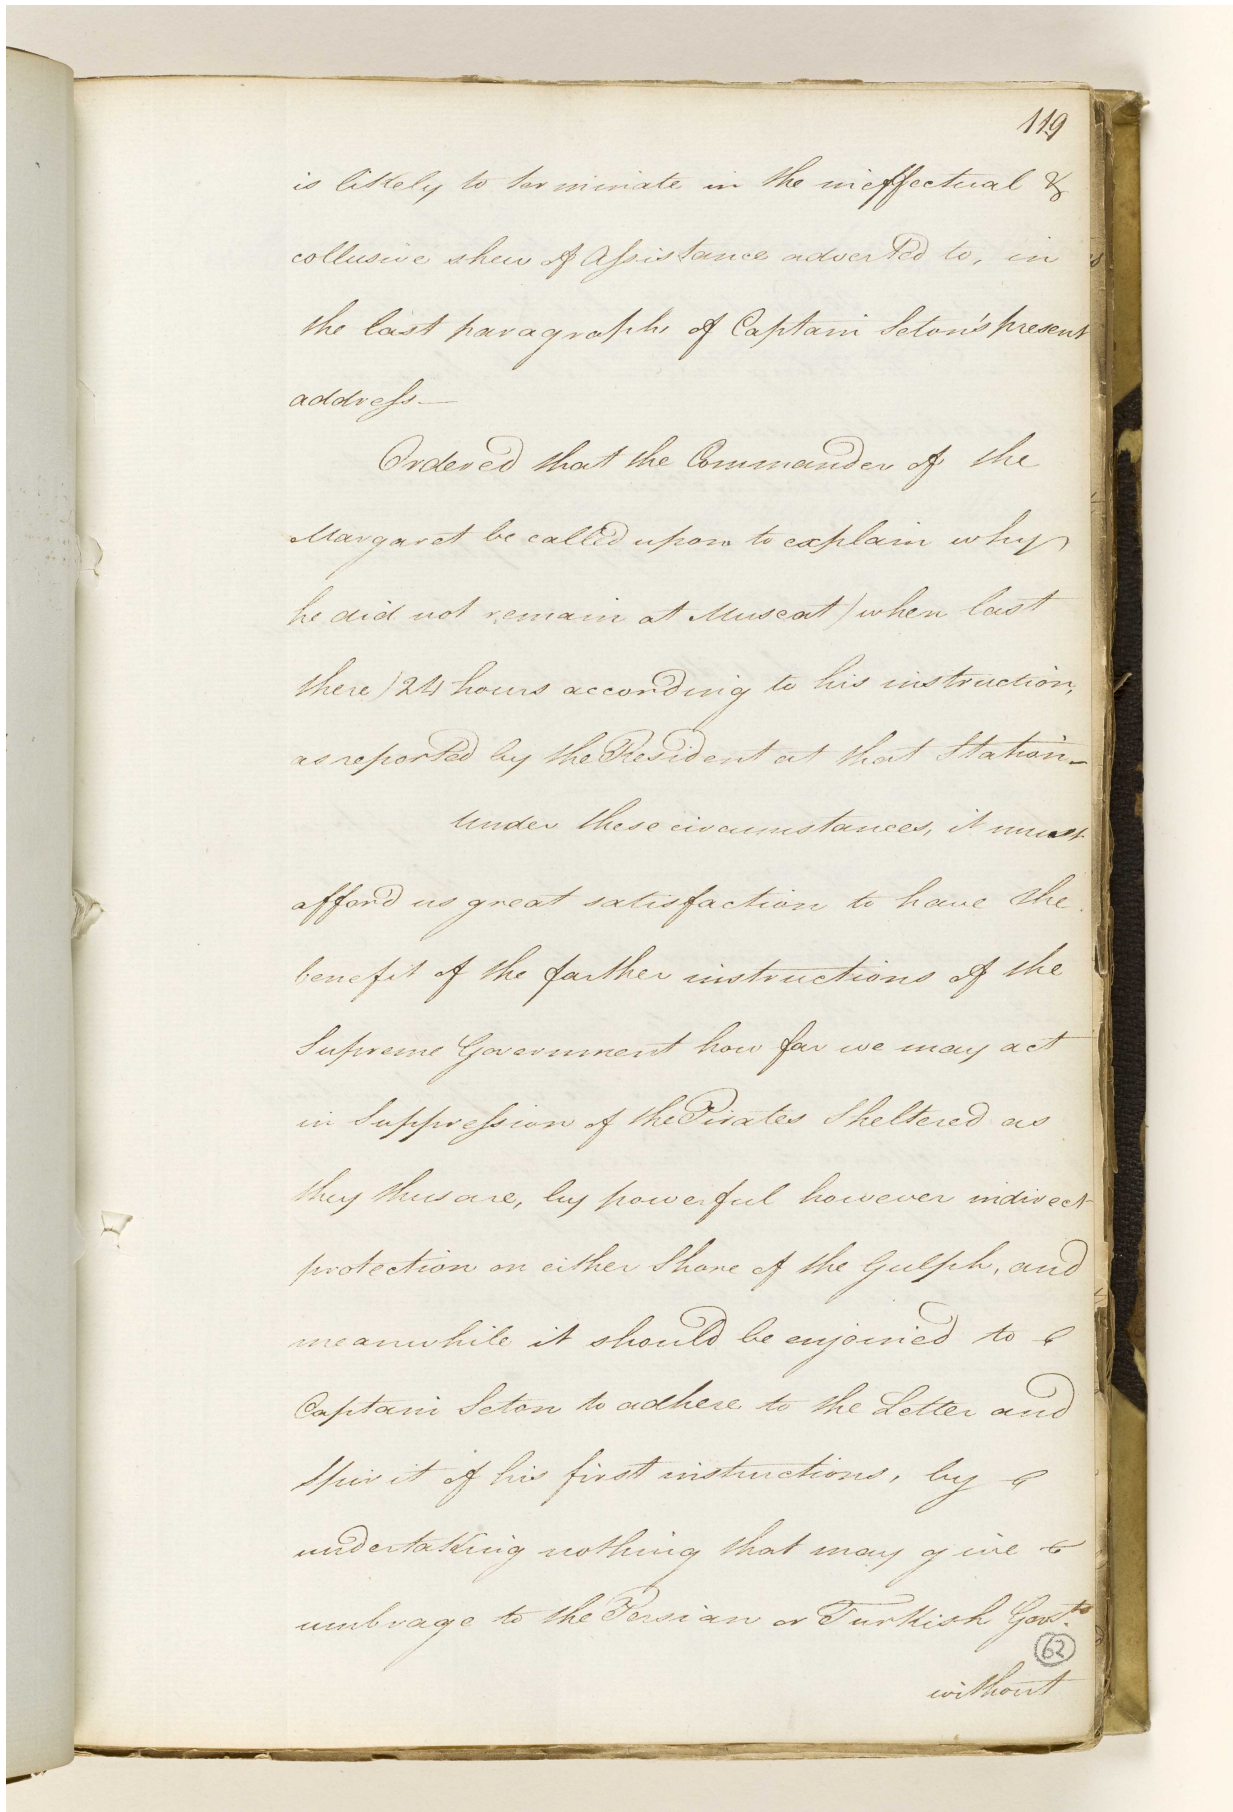 119
is likely to terminate in the ineffectual &
collusive shew of Assistance adverted to, in
the last paragraph of Captain Seton's present
address—
Ordered that the Commander of the
Margaret be called upon to explain why
he did not remain at Muscat) when last
there) 24 hours according to his instruction,
as reported by the Resident at that Station—
Under these circumstances, it must
afford us great satisfaction to have the
benefit of the farther instructions of the
Supreme Government how far we may act
in Suppression of the Pirates Sheltered as
they thus are, by powerful however indirect
protection on either Shore of the Gulph, and
meanwhile it should be enjoined to
Captain Seton to adhere to the Letter and
Spirit of his first instructions, by
undertaking nothing that may give
umbrage to the Persian or Turkish Govts.
62
without